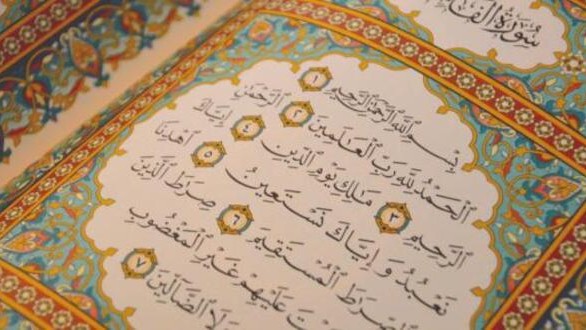 سُورَةُ الْفَا
بِسْمِ ٱللَّهِ ٱلرَّحْمَٰنِ ٱلرَّحِيمِ ١
ٱلْحَمْدُ لِلَّهِ رَبِّ ٱلْعَٰلَمِينَ ٢ ٱلرَّحْمَٰنِ
ٱلرَّحِيمِ ٣ مَٰلِكِ يَوْمِ ٱلدِّينِ ٤ إِيَّاكَ
نَعْبُدُ وَإِيَّاكَ نَسْتَعِينُ ٥ ٱهْدِنَا
ٱلصِّرَٰطَ ٱلْمُسْتَقِيمَ ٦ صِرَٰطَ ٱلَّذِينَ
عَلَيْهِمْ غَيْرِ ٱلْمَغْضُوبِ
لَا ٱلضَّالِّينَ ٧